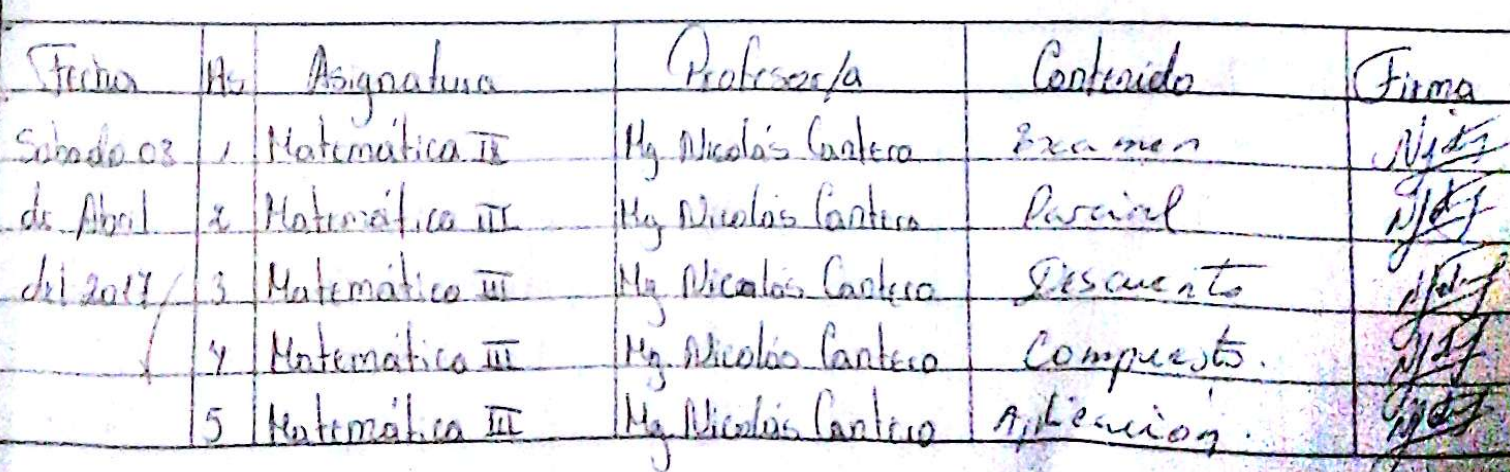 Fecha Hs Asignatura Profesor/a Contenido Firma
Sabado 03 1 Matemática III Mg Nicolás Cantero Examen
de Abril 2 Matemática III Mg Nicolás Cantero Parcial
del 2017 3 Matemática III Mg Nicolás Cantero Descuento
4 Matemática III Mg Nicolás Cantero Compuesto.
5 Matemática III Mg Nicolás Cantero Aplicación.